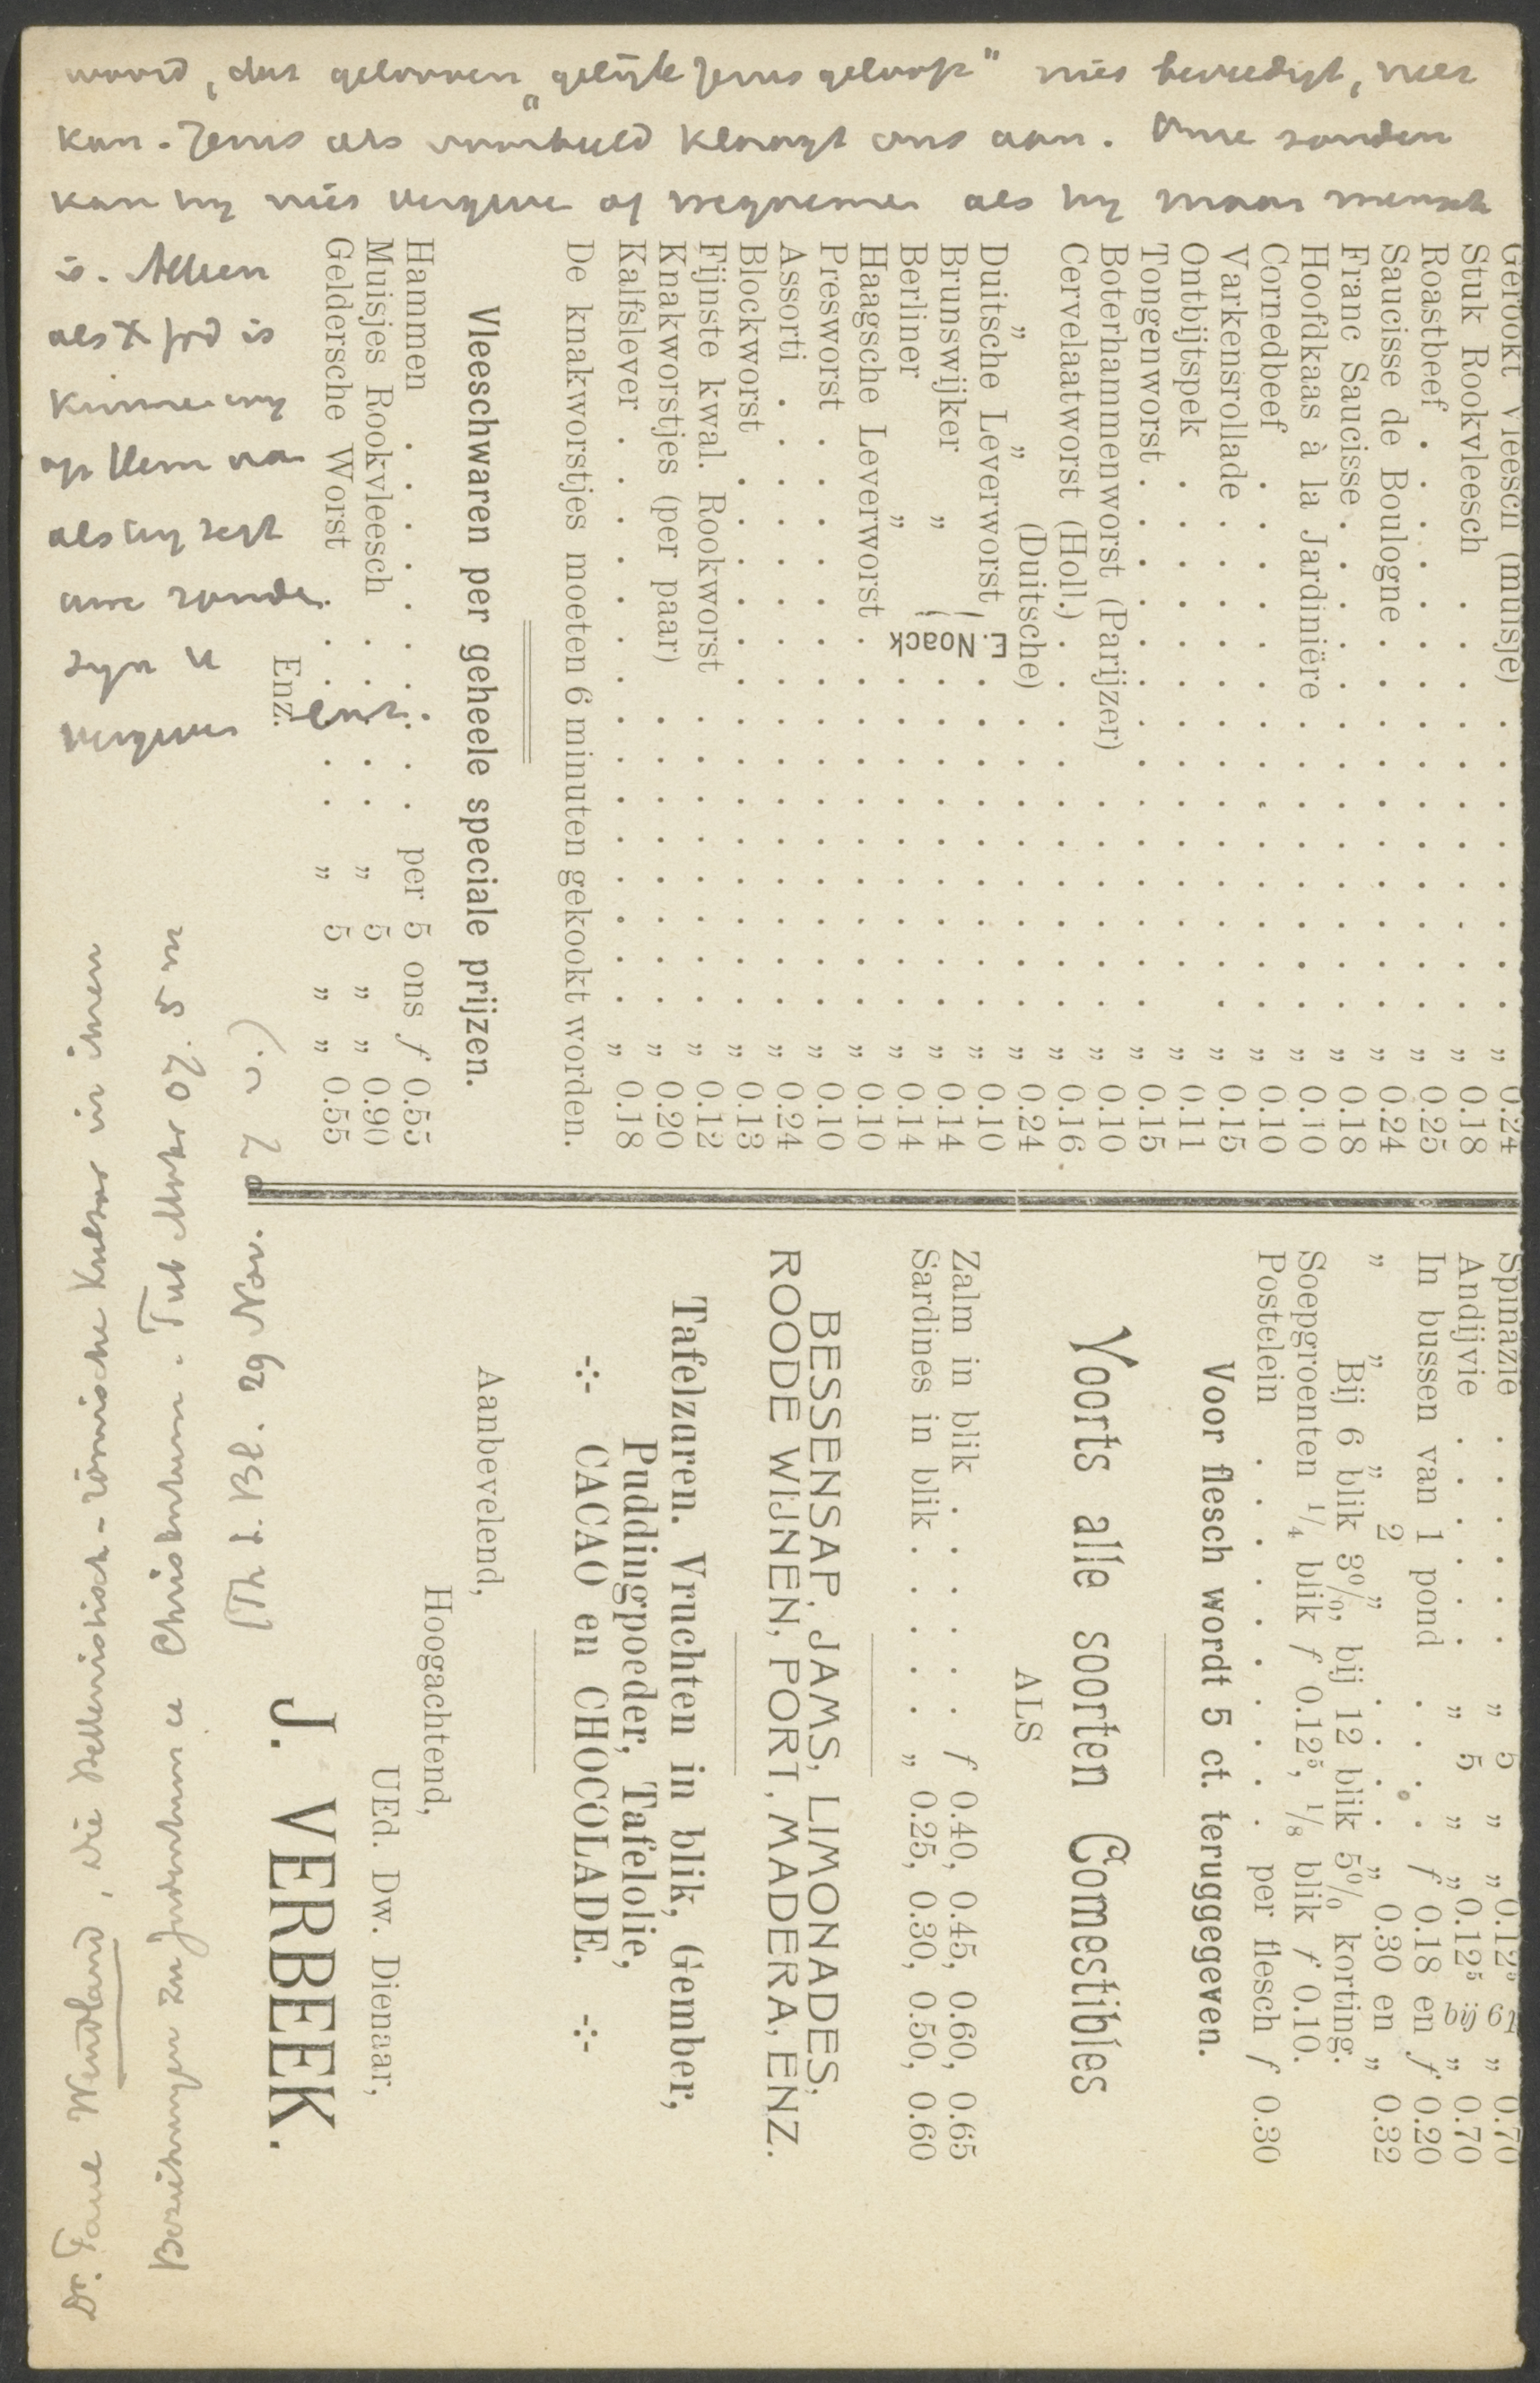 woord, dus gelooven „gelijk Jezus geloofde" niet bevredigt, niet
kan. Jezus als voorbeeld klaagt ons aan. Onze zonden
kan hij niet vergeven of wegnemen als hij maar mensch
is. Alleen
als X God is
kunnen wij
op Hem aan
als hij zegt
uwe zonden
zijn U
vergeven
enz.
Gerookt Vleesch (muisje) . . . „ 0.24
Stuk Rookvleesch . . . „ 0.18
Roastbeef . . . „ 0.25
Saucisse de Boulogne . . . „ 0.24
Franc Saucisse . . . „ 0.18
Hoofdkaas à la Jardinière . . . „ 0.10
Cornedbeef . . . „ 0.10
Varkensrollade . . . „ 0.15
Ontbijtspek . . . „ 0.11
Tongenworst . . . „ 0.15
Boterhammenworst (Parijzer) . . . „ 0.10
Cervelaatworst (Holl.) . . . „ 0.16
„ „ (Duitsche) . . . „ 0.24
Duitsche Leverworst . . . „ 0.10
Brunswijker „ . . . „ 0.14
E. Noack
Berliner „ . . . „ 0.14
Haagsche Leverworst . . . „ 0.10
Presworst . . . „ 0.10
Assorti . . . „ 0.24
Blockworst . . . „ 0.13
Fijnste kwal. Rookworst . . . „ 0.12
Knakworstjes (per paar) . . . „ 0.20
Kalfslever . . . „ 0.18
De knakworstjes moeten 6 minuten gekookt worden.
Vleeschwaren per geheele speciale prijzen.
Hammen . . . per 5 ons f 0.55
Muisjes Rookvleesch . . . „ 5 „ „ 0.90
Geldersche Worst . . . „ 5 „ „ 0.55
Enz.
Spinazie . . . „ 5 „ „ 0.12⁵ bij 61 „ 0.70
Andijvie . . . „ 5 „ „ 0.12⁵ „ 0.70
In bussen van 1 pond . . . f 0.18 en f 0.20
„ „ „ 2 „ . . . „ 0.30 en „ 0.32
Bij 6 blik 3%, bij 12 blik 5% korting.
Soepgroenten ¼ blik f 0.12⁵, ⅛ blik f 0.10.
Postelein . . . per flesch f 0.30
Voor flesch wordt 5 ct. teruggegeven.
Voorts alle soorten Comestibles
ALS
Zalm in blik . . . f 0.40, 0.45, 0.60, 0.65
Sardines in blik . . . „ 0.25, 0.30, 0.50, 0.60
BESSENSAP, JAMS, LIMONADES,
ROODE WIJNEN, PORT, MADERA, ENZ.
Tafelzuren. Vruchten in blik, Gember,
Puddingpoeder, Tafelolie,
CACAO en CHOCOLADE.
Aanbevelend,
Hoogachtend,
UEd. Dw. Dienaar,
J. VERBEEK.
Dr. Paul Wendland, die Hellenistisch-römische Kultur in ihren
Beziehungen zu Judentum u Christentum. Tub Mohr 07. 5 m
(Th L. Bl. 29 Nov. 07 v.)